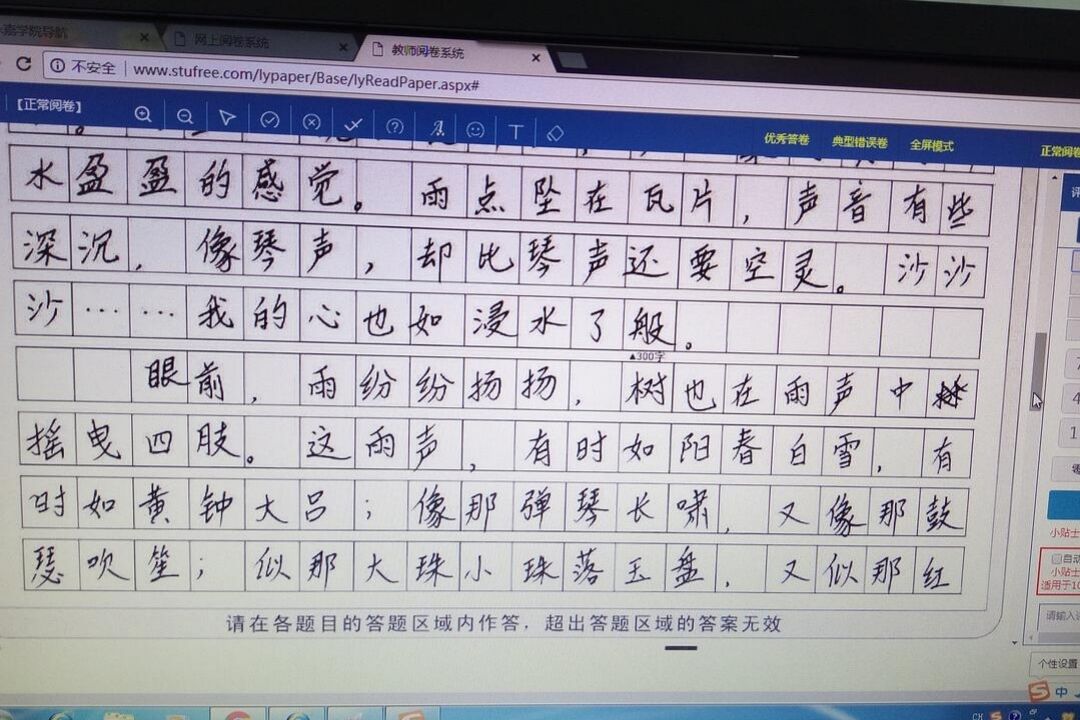 嘉学院导航 网上阅卷系统 教师阅卷系统
不安全 www.stufree.com/lypaper/Base/lyReadPaper.aspx#
【正常阅卷】 优秀答卷 典型错误卷 全屏模式 正常阅卷
水盈盈的感觉。雨点坠在瓦片，声音有些
深沉，像琴声，却比琴声还要空灵。沙沙
沙……我的心也如浸水了般。
▲300字
眼前，雨纷纷扬扬，树也在雨声中
摇曳四肢。这雨声，有时如阳春白雪，有
时如黄钟大吕；像那弹琴长啸，又像那鼓
瑟吹笙；似那大珠小珠落玉盘，又似那红
请在各题目的答题区域内作答，超出答题区域的答案无效
小贴士
自动
小贴士
适用于10
请输入
个性设置
中
CH